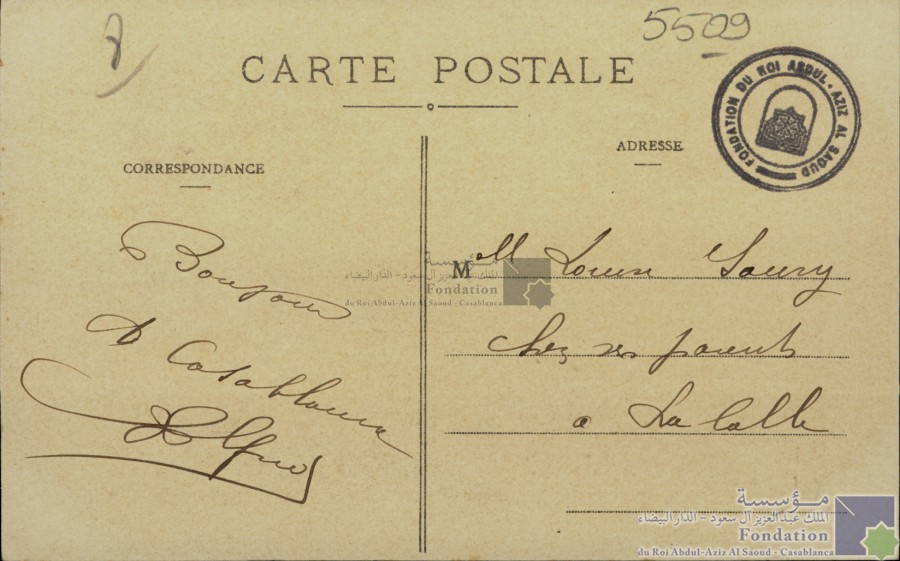 5509
CARTE POSTALE
FONDATION DU ROI ABDUL-AZIZ AL SAOUD
CORRESPONDANCE
Bonjour
de Casablanca
Alfred
ADRESSE
Mlle Louise
chez ses parents
a La Calle
مؤسسة
الملك عبد العزيز آل سعود - الدار البيضاء
Fondation
du Roi Abdul-Aziz Al Saoud - Casablanca
مؤسسة
الملك عبد العزيز آل سعود - الدار البيضاء
Fondation
du Roi Abdul-Aziz Al Saoud - Casablanca